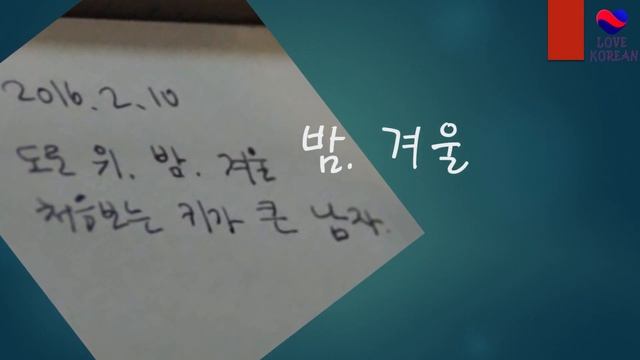 2016.2.10
도로 위. 밤. 겨울
처음보는 키가 큰 남자.
밤. 겨울
LOVE
KOREAN